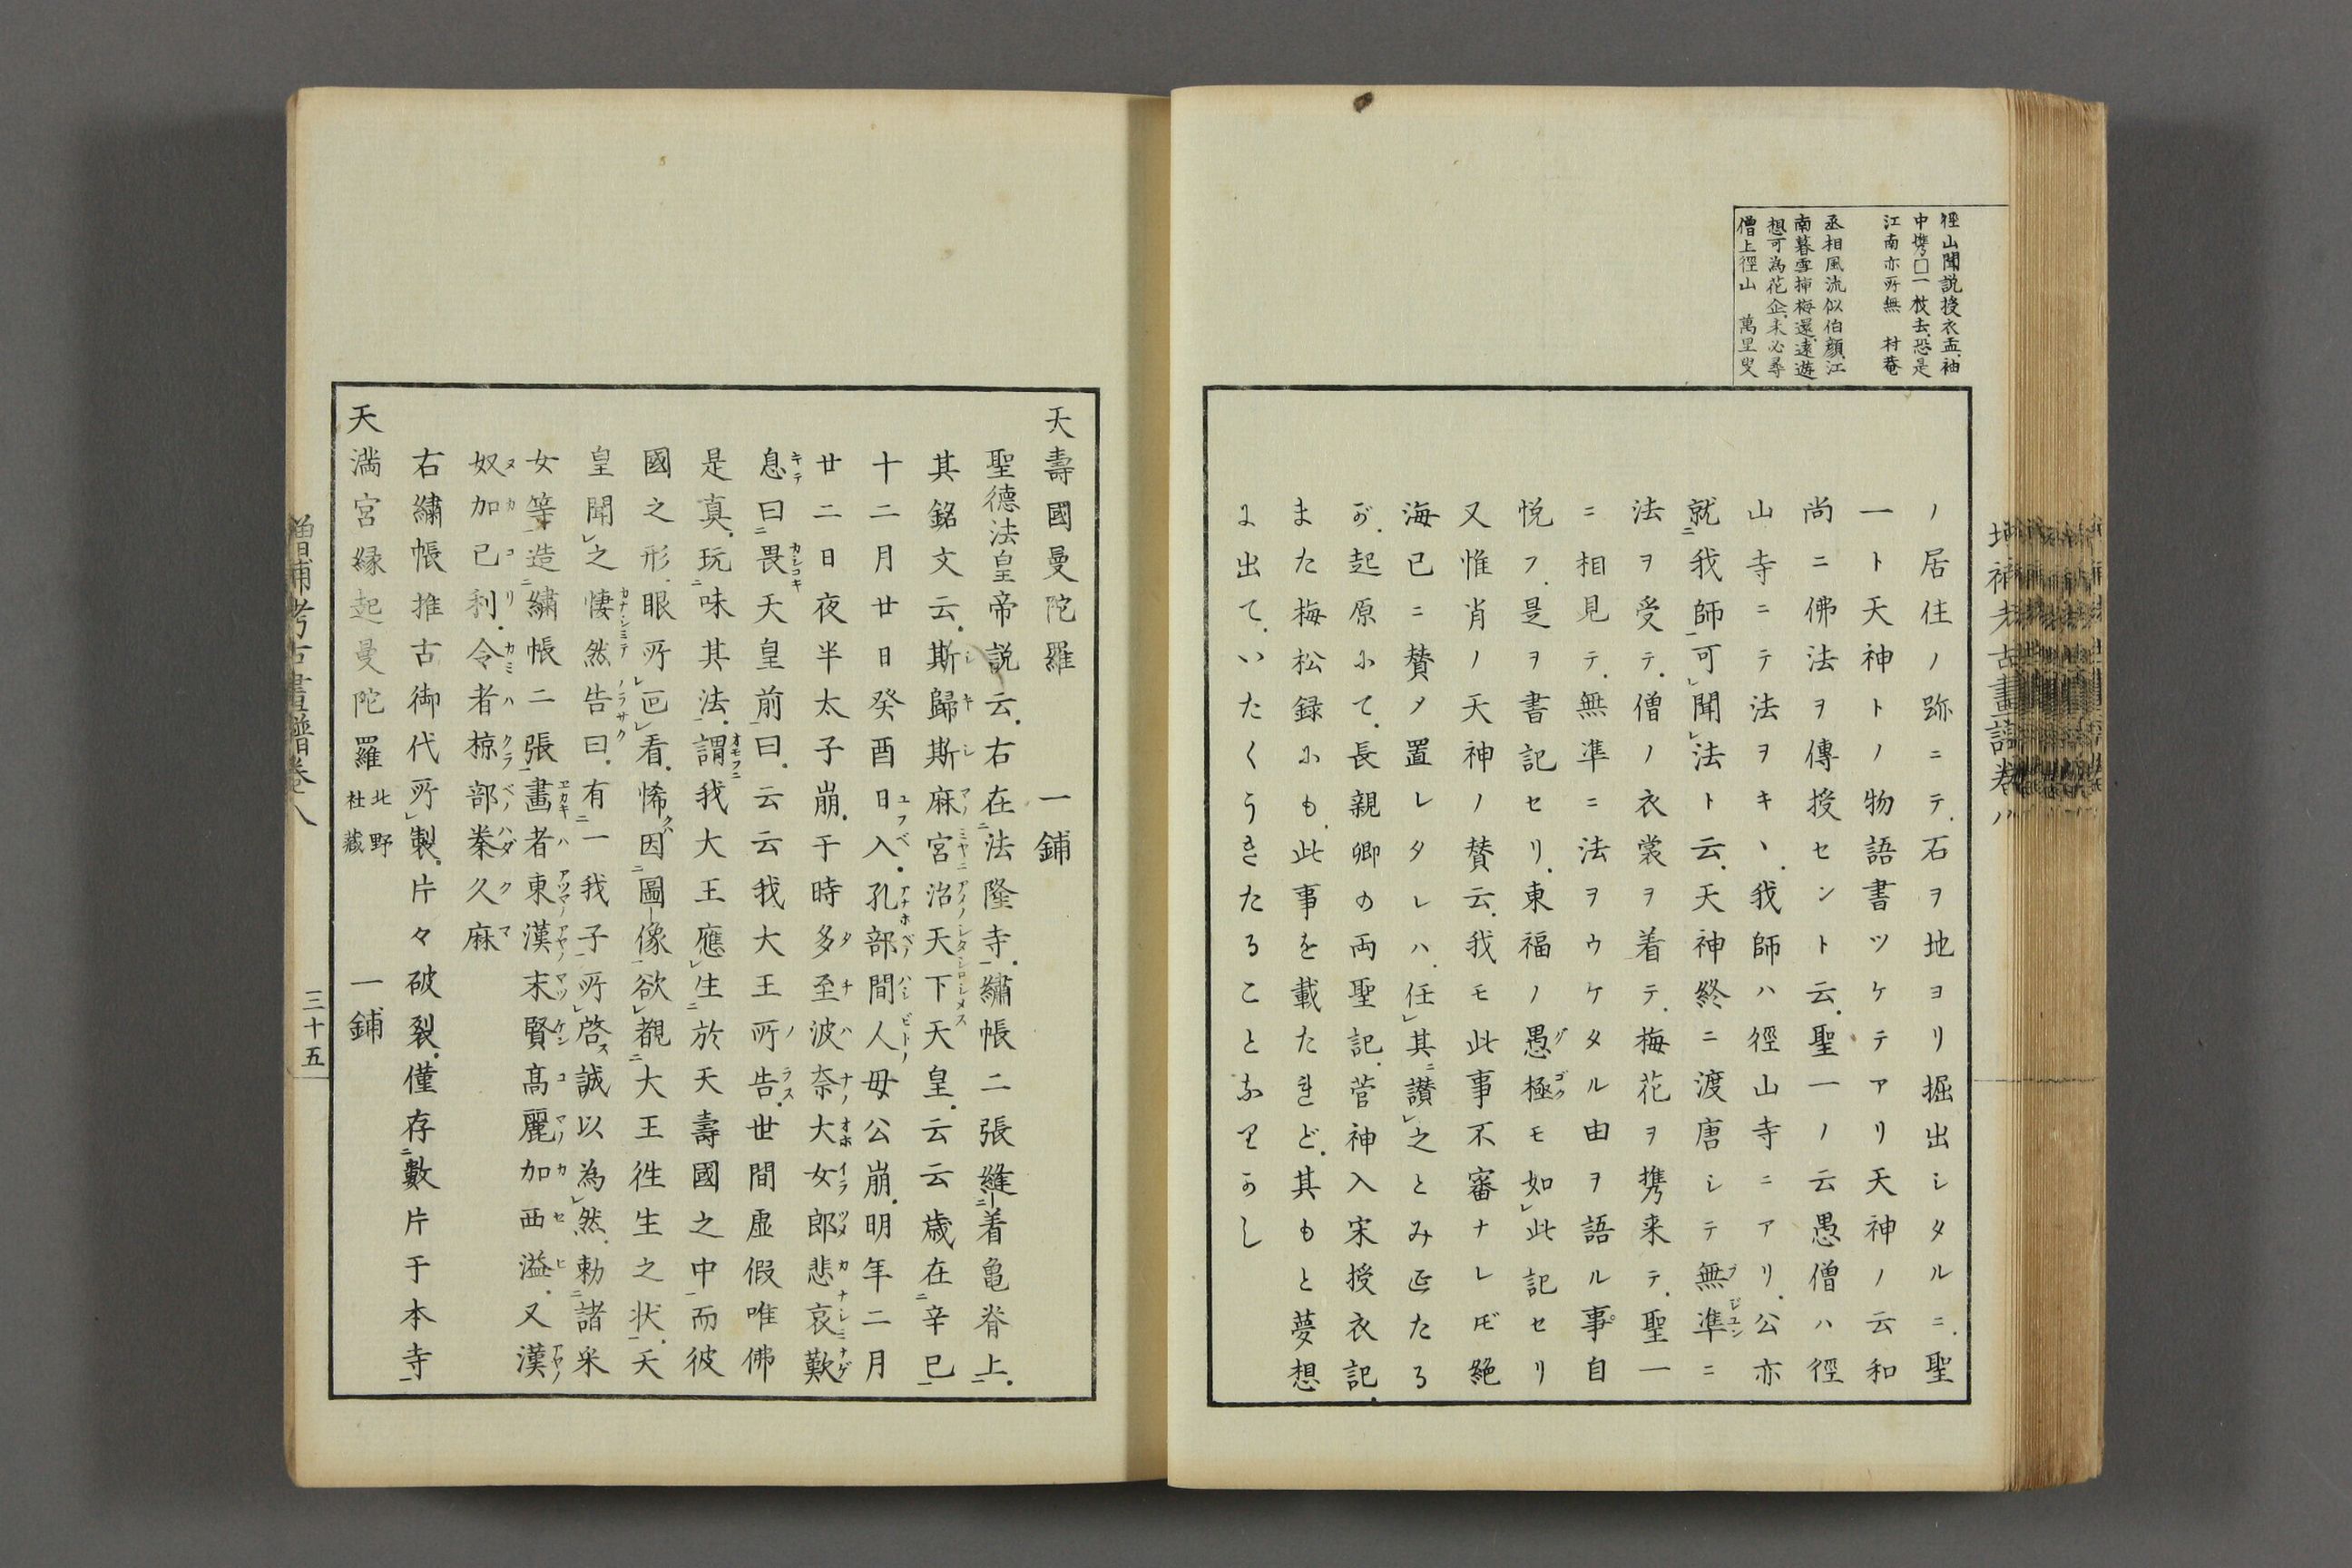 徑山聞説授衣盂、袖
中携□一枝去、恐是
江南亦所無　村菴
丞相風流似伯顔、江
南暮雪挿梅還、遠遊
想可為花企、未必尋
僧上徑山　萬里叟
ノ居住ノ跡ニテ、石ヲ地ヨリ掘出シタルニ、聖
一ト天神トノ物語書ツケテアリ天神ノ云和
尚ニ佛法ヲ傳授センﾄ云、聖一ノ云愚僧ハ徑
山寺ニテ法ヲキヽ、我師ハ徑山寺ニアリ、公亦
就ニ我師一可レ聞レ法ト云、天神終ニ渡唐シテ無準ニ
法ヲ受テ、僧ノ衣裳ヲ着テ、梅花ヲ携来テ、聖一
ニ相見テ、無準ニ法ヲウケタル由ヲ語ル事、自
悦フ、是ヲ書記セリ、東福ノ愚極モ如レ此記セリ
又惟肖ノ天神ノ賛云、我モ此事不審ナレ𪜈絶
海已ニ賛メ置レタレハ、任レ其ニ讃レ之とみ𛀁たる
が、起原にて、長親卿の両聖記、菅神入宋授衣記、
また梅松録にも、此事を載たれど、其もと夢想
に出て、いたくうきたることなりかし
増補考古畫譜巻八
天壽國曼陀羅　　一鋪
聖德法皇帝説云、右在ニ法隆寺一、繍帳二張縫ニ着亀脊上一、
其銘文云、斯歸斯麻宮治天下天皇、云云歳在ニ辛巳一
十二月廿日癸酉日入、孔部間人母公崩、明年二月
廿二日夜半太子崩、于時多至波奈大女郎悲哀歎
息曰ニ畏天皇前一曰、云云我大王所告、世間虚假唯佛
是真、玩ニ味其法一、謂我大王應レ生ニ於天壽國之中一而彼
國之形、眼所レ叵レ看、悕因ニ圖像一、欲レ覩ニ大王徃生之状一、天
皇聞レ之悽然告曰、有ニ一我子一所レ啓誠以為レ然、勅ニ諸采
女等一造ニ繍帳二張一畫者東漢末賢髙麗加西溢、又漢
奴加己利、令者椋部秦久麻
右繍帳推古御代所レ製、片々破裂、僅存ニ數片于本寺一
天満宮縁起曼陀羅 北野社藏　　一鋪
増補考古畫譜巻八
三十五